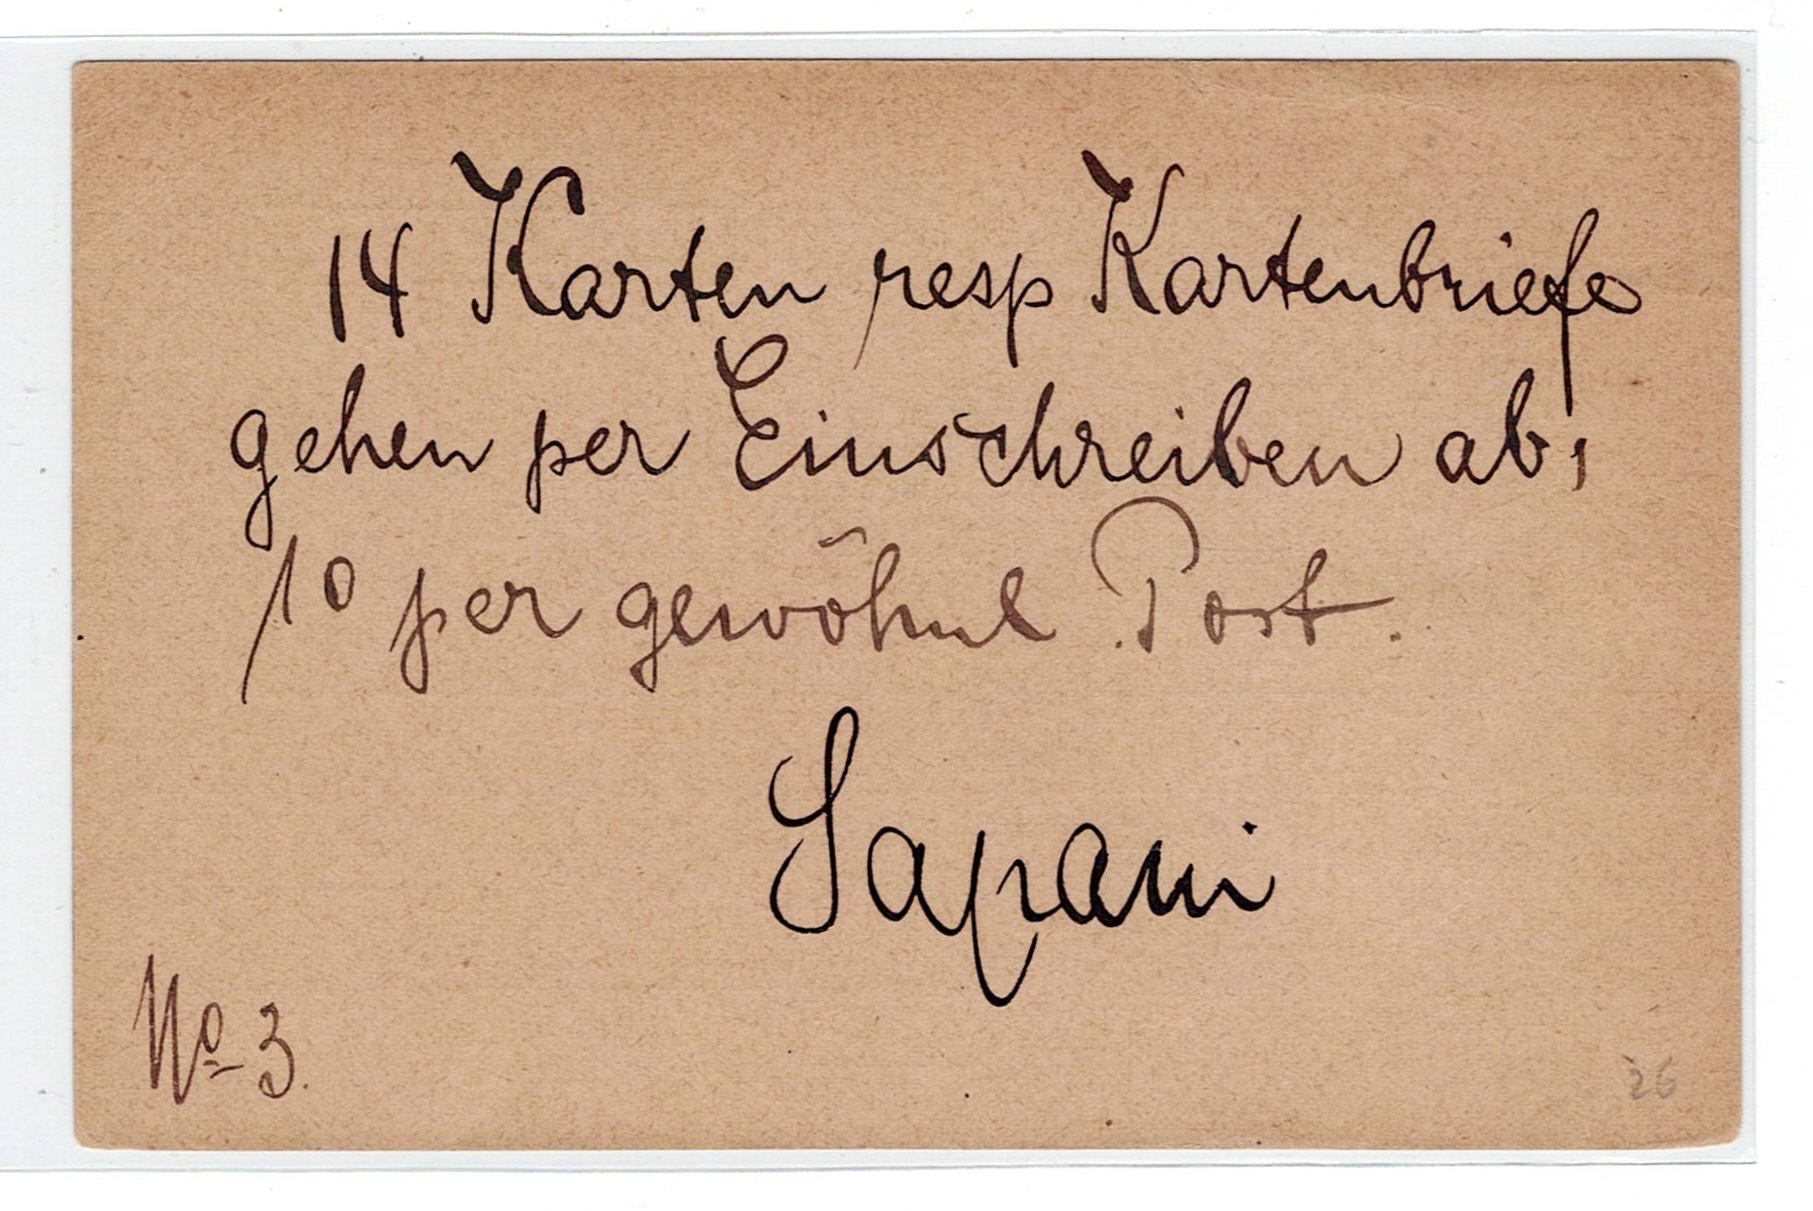 14 Karten resp Kartenbriefe
gehen per Einschreiben ab,
10 per gewöhnl Post.
Sapani
No 3.
26